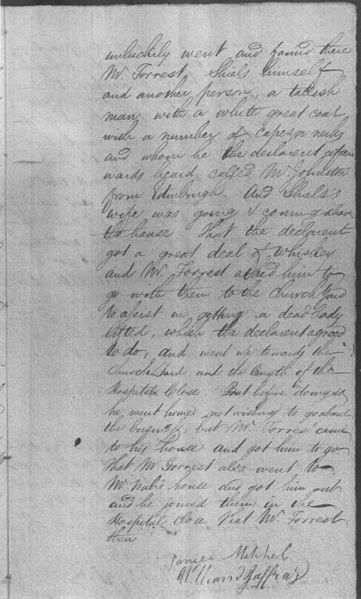 unluckily went and found there
Mr. Forrest, Shiels himself
and another person, a tallish
man, with a white great coat
with a number of capes or necks
and whom he the declarant after
wards heard called Mr. Johnston
from Edinburgh. And Shiels's
wife was going & coming about
the house That the declarant
got a great deal of whiskey
and Mr. Forrest asked him to
go with them to the Church Yard
to assist in getting a dead body
lifted, which the declarant agreed
to do, and went up towards the
Church Yard and the length of the
Hospital Close. But before doing so
he went home, not wishing to go about
the business, but Mr. Forrest came
to his house and got him to go
That Mr Forrest also went to
Mr house and got him out
and he joined them in the
Hospital Close That Mr. Forrest
then
Daniel Mitchel